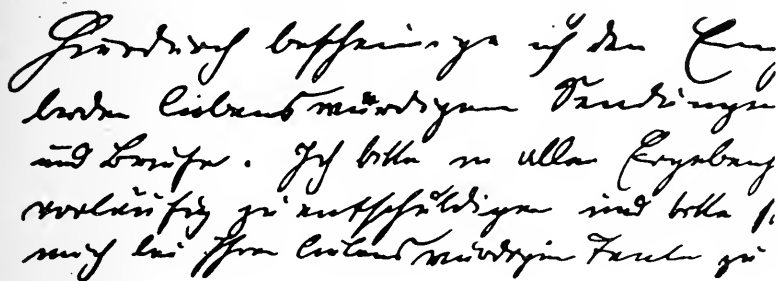 Hierdurch bescheinige ich den Em
beiden liebenswürdigen Sendungen
und Briefe. Ich bitte in aller Ergebenh
vorläufig zu entschuldigen und bitte S
mich bei Ihrer liebenswürdigen Tante zu